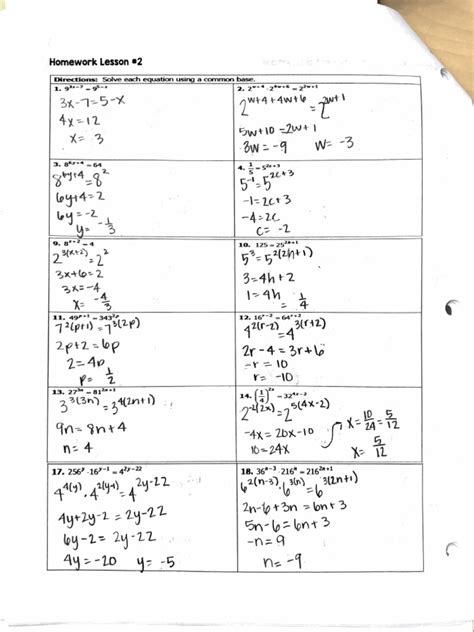 Homework Lesson #2
Directions: Solve each equation using a common base.
1. 9^(3x-7) = 9^(5-x)
3x-7=5-x
4x=12
x= 3
2. 2^(w+4) · 2^(4w+6) = 2^(2w+1)
2^(w+4+4w+6) = 2^(2w+1)
5w+10=2w+1
3w=-9 w= -3
3. 8^(6y+4) = 64
=8^2
6y+4=2
6y=-2
y=-1/3
4. 1/5 = 5^(2c+3)
5^-1=5^(2c+3)
-1=2c+3
-4=2c
c= -2
9. 8^(x+2) = 4
2^(3(x+2))=2^2
3x+6=2
3x=-4
x= -4/3
10. 125 = 25^(2h+1)
5^3=5^(2(2h+1))
3=4h+2
1=4h h= 1/4
11. 49^(p+1) = 343^(2p)
7^(2(p+1))=7^(3(2p))
2p+2=6p
2=4p
p= 1/2
12. 16^(r-2) = 64^(r+2)
4^(2(r-2))=4^(3(r+2))
2r-4=3r+6
-r=10
r= -10
13. 27^(3n) = 81^(2n+1)
3^(3(3n))=3^(4(2n+1))
9n=8n+4
n=4
14. (1/4)^(2x) = 32^(4x-2)
2^(-2(2x))=2^(5(4x-2))
-4x=20x-10
10=24x
x= 10/24 = 5/12
x= 5/12
17. 256^y · 16^(y-1) = 4^(2y-22)
4^(4(y)) · 4^(2(y-1)) = 4^(2y-22)
4y+2y-2=2y-22
6y-2=2y-22
4y=-20 y=-5
18. 36^(n-3) · 216^n = 216^(2n+1)
6^(2(n-3)) · 6^(3(n)) = 6^(3(2n+1))
2n-6+3n=6n+3
5n-6=6n+3
-n=9
n=-9